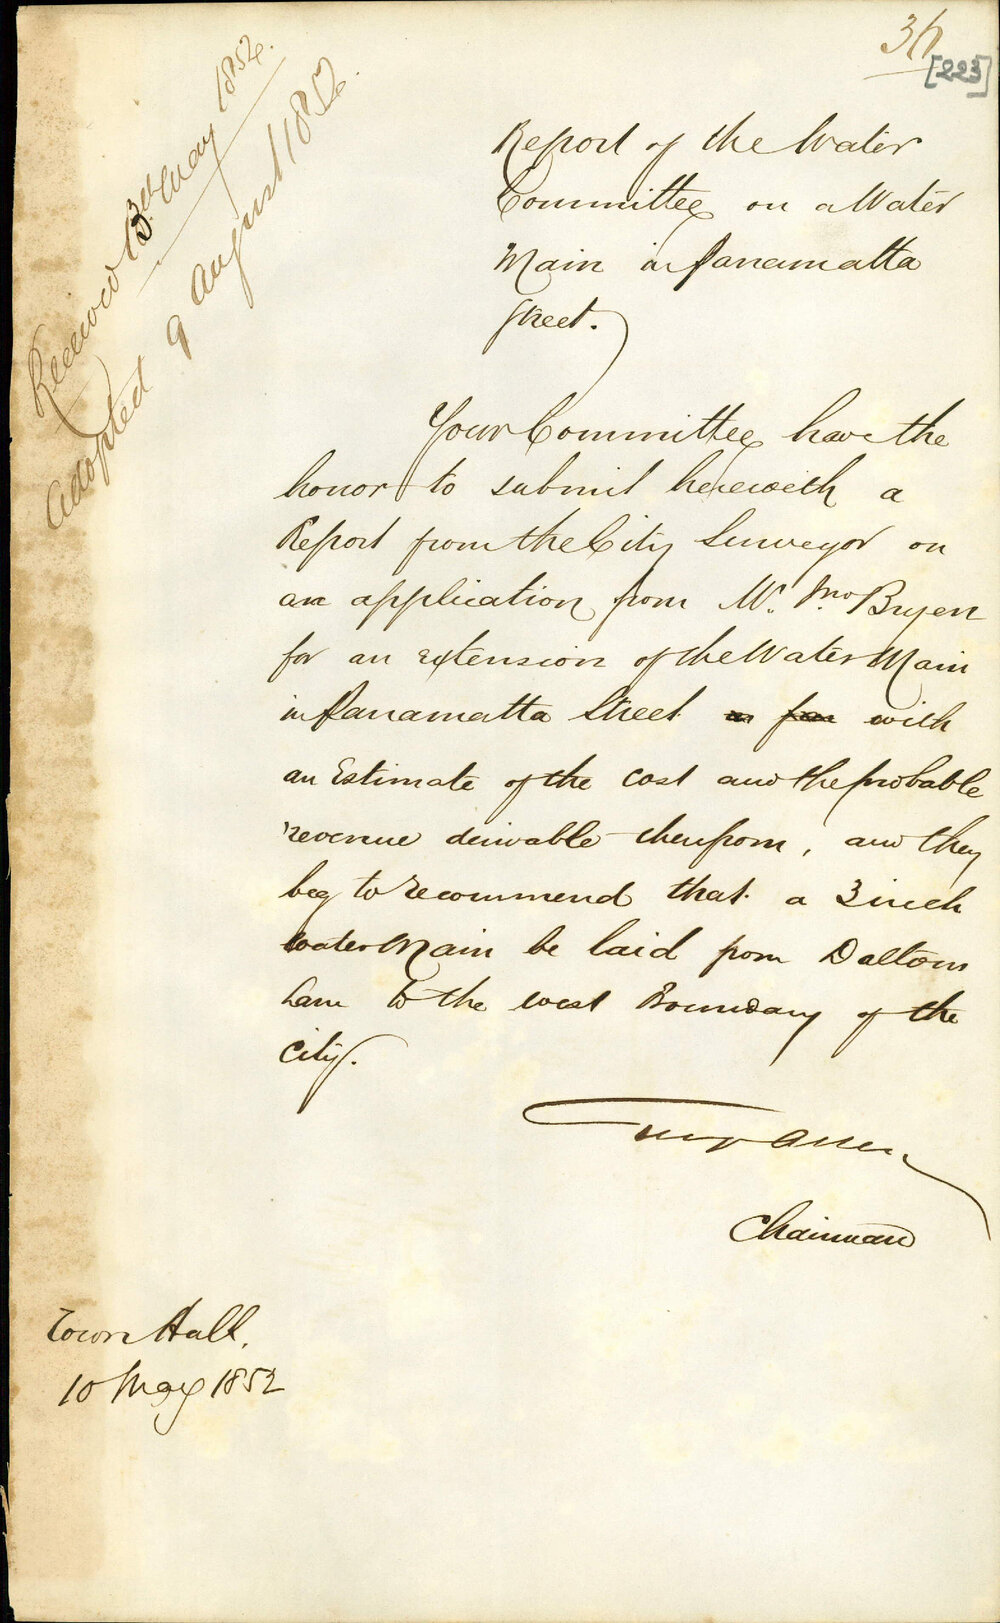 36
[223]
Received 13th May 1852.
Adopted 9 August 1852.
Report of the Water
Committee on a Water
Main in Parramatta
Street.
Your Committee have the
honor to submit herewith a
Report from the City Surveyor on
an application from Mr. McBryen
for an extension of the Water Main
in Parramatta Street with
an Estimate of the cost and the probable
revenue derivable therefrom, and they
beg to recommend that a 3 inch
water Main be laid from Daltons
Lane to the west Boundary of the
City.
Chairman
Town Hall,
10 May 1852